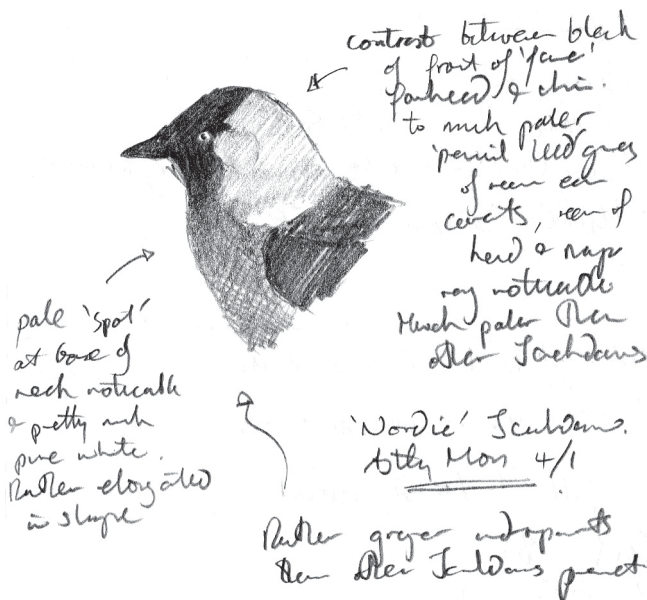 contrast between black
of front of 'face'
forehead & chin.
to much paler
'pencil lead' grey
of rear ear
coverts, rear of
head & nape
very noticeable
Much paler than
other Jackdaws
pale 'spot'
at base of
neck noticeable
& pretty much
pure white.
Rather elongated
in shape
'Nordic' Jackdaw.
Astley Moss 4/1
Rather greyer underparts
than other Jackdaws present